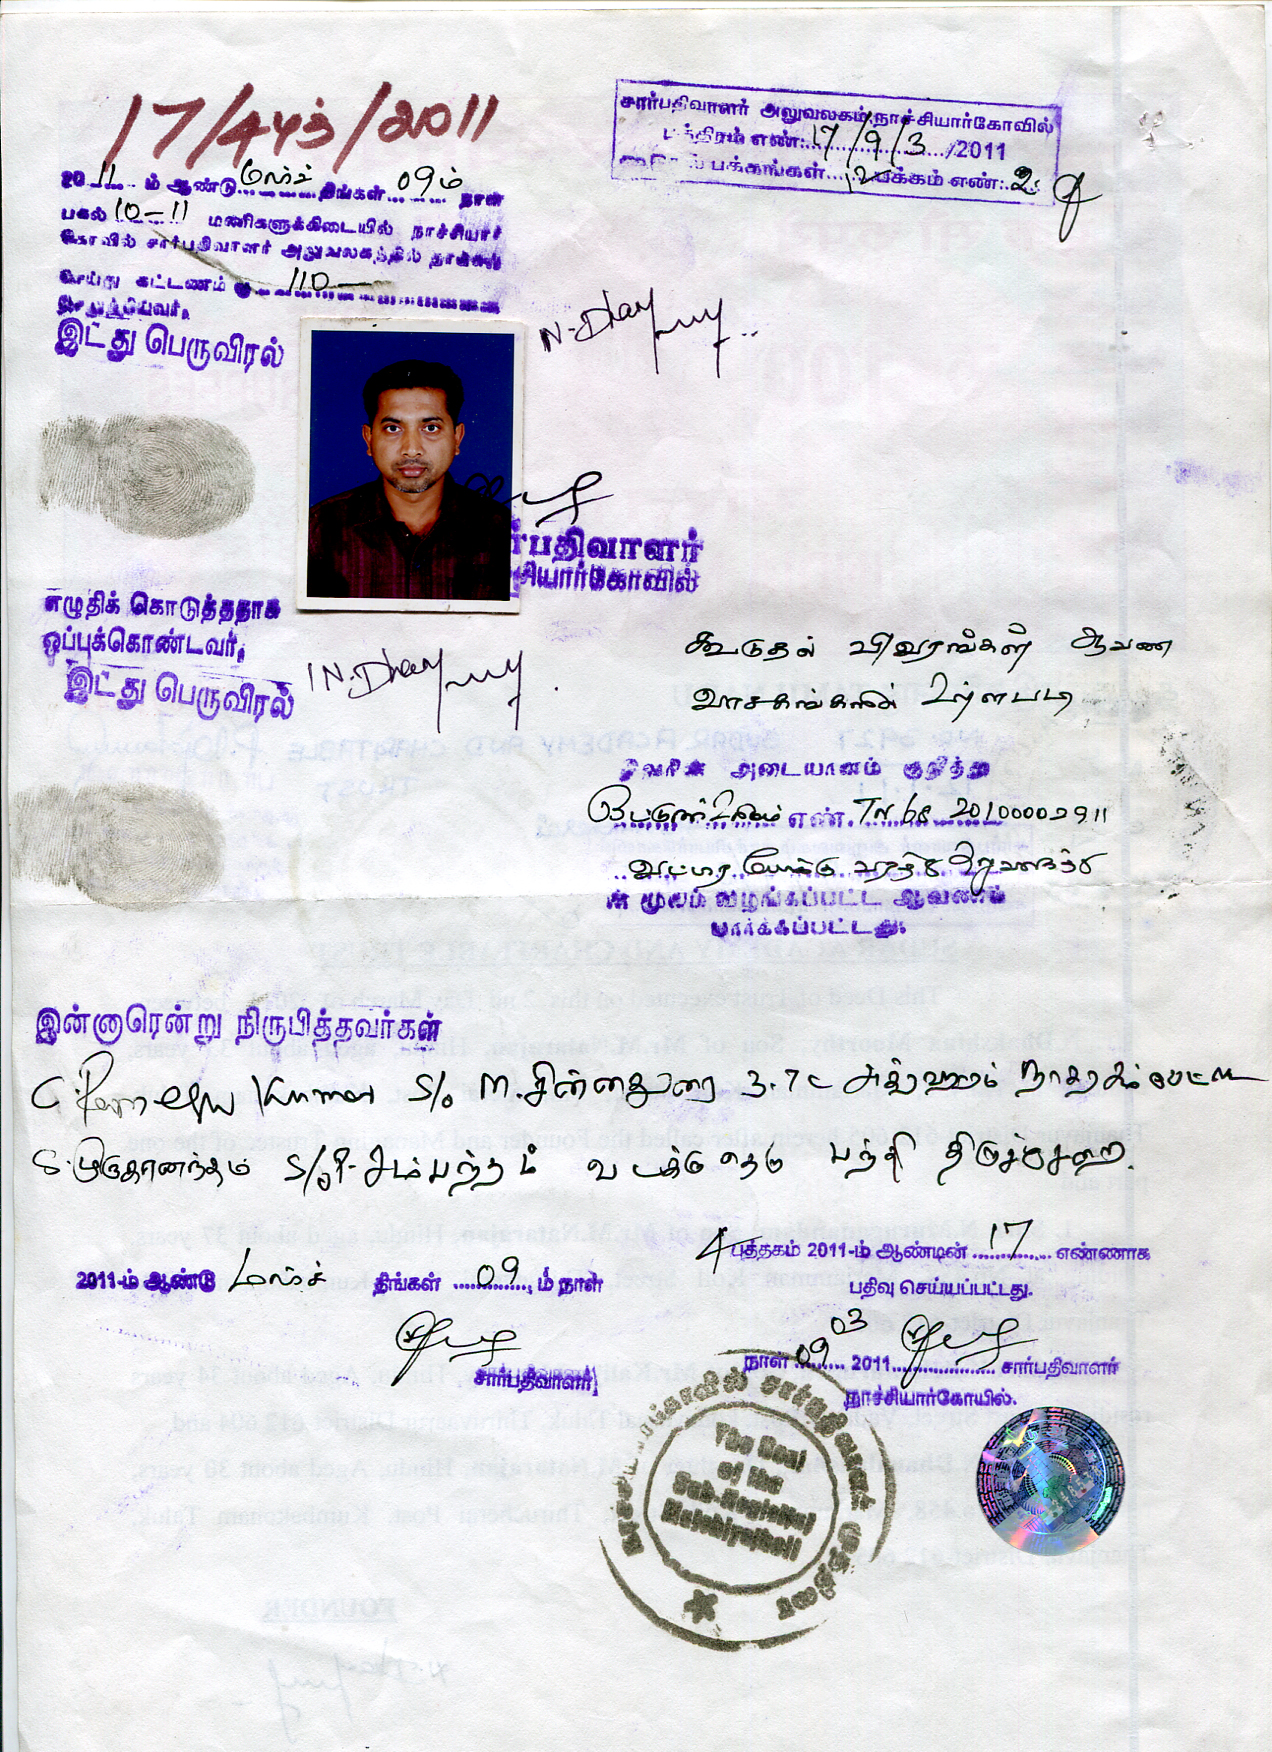 17/4புத்/2011
சார்பதிவாளர் அலுவலகம் நாச்சியார்கோவில்
பத்திரம் எண்: 17/9/3/2011
பக்கங்கள் 12 பக்கம் எண்: 2
2011 ம் ஆண்டு மார்ச் திங்கள் 09ம் நாள்
பகல் 10-11 மணிகளுக்கிடையில் நாச்சியார்
கோவில் சார்பதிவாளர் அலுவலகத்தில் தாக்கல்
செய்து கட்டணம் ரூ 110-
செலுத்தியவர்.
இடது பெருவிரல்
சார்பதிவாளர்
நாச்சியார்கோவில்
எழுதிக் கொடுத்ததாக
ஒப்புக்கொண்டவர்.
இடது பெருவிரல்
கூடுதல் விவரங்கள் ஆவண
வாசகங்களில் உள்ளபடி
இவரின் அடையாளம் குறித்து
எண். TN 68 20100002911
வட்டார போக்கு வரத்து
ன் மூலம் வழங்கப்பட்ட ஆவணம்
பார்க்கப்பட்டது.
இன்னாரென்று நிருபித்தவர்கள்
S/o M.சின்னதுரை 3.7C அக்ரஹாரம்
S.முருகானந்தம் S/o சம்பந்தம் வடக்கு தெரு
4 புத்தகம் 2011-ம் ஆண்டின் 17 எண்ணாக
பதிவு செய்யப்பட்டது.
2011-ம் ஆண்டு மார்ச் திங்கள் 09 ம் நாள்
சார்பதிவாளர்
நாள் 09 03 2011 சார்பதிவாளர்
நாச்சியார்கோயில்.
The Seal
of the
Sub-Registrar